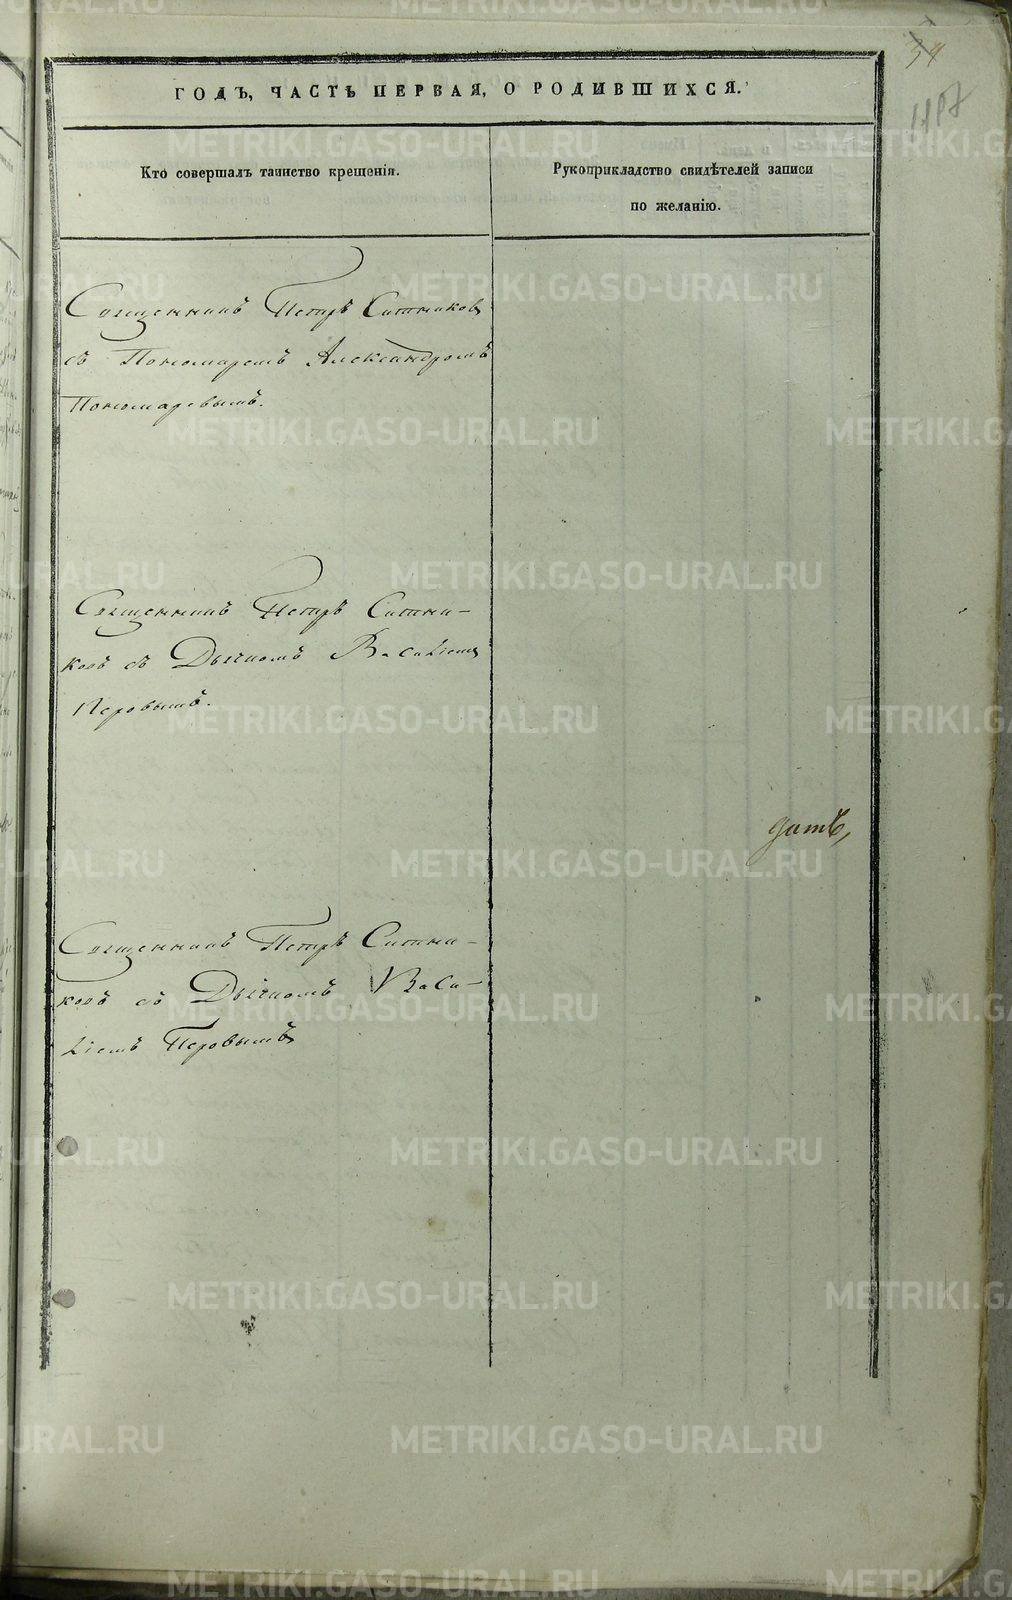 34
ГОДЪ, ЧАСТЬ ПЕРВАЯ, О РОДИВШИХСЯ.
Кто совершалъ таинство крещенія.
Рукоприкладство свидѣтелей записи
по желанію.
Священникъ Петръ Ситниковъ
съ Пономаремъ Александромъ
Пономаревымъ.
Священникъ Петръ Ситни-
ковъ съ Дьячкомъ Василіемъ
Перовымъ.
дать,
Священникъ Петръ Ситни-
ковъ съ Дьячкомъ Васи-
ліемъ Перовымъ
METRIKI.GASO-URAL.RU